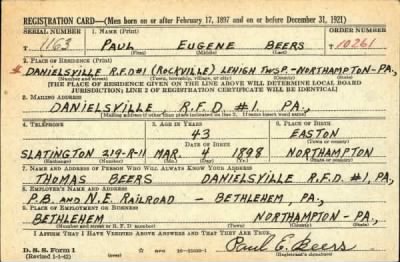 REGISTRATION CARD—(Men born on or after February 17, 1897 and on or before December 31, 1921)
SERIAL NUMBER 1. NAME (Print) ORDER NUMBER
T 1163 PAUL EUGENE BEERS T 10261
(First) (Middle) (Last)
2. PLACE OF RESIDENCE (Print)
DANIELSVILLE R.F.D#1 (ROCKVILLE) LEHIGH TWSP.-NORTHAMPTON-PA,
(Number and street) (Town, township, village, or city) (County) (State)
[THE PLACE OF RESIDENCE GIVEN ON THE LINE ABOVE WILL DETERMINE LOCAL BOARD
JURISDICTION; LINE 2 OF REGISTRATION CERTIFICATE WILL BE IDENTICAL]
3. MAILING ADDRESS
DANIELSVILLE, R.F.D. #1. PA.,
[Mailing address if other than place indicated on line 2. If same insert word same]
4. TELEPHONE 5. AGE IN YEARS 6. PLACE OF BIRTH
43 EASTON
DATE OF BIRTH (Town or county)
SLATINGTON 219-R-11 MAR. 4 1898 NORTHAMPTON
(Exchange) (Number) (Mo.) (Day) (Yr.) (State or country)
7. NAME AND ADDRESS OF PERSON WHO WILL ALWAYS KNOW YOUR ADDRESS
THOMAS BEERS DANIELSVILLE R.F.D. #1, PA,
8. EMPLOYER'S NAME AND ADDRESS
P.B. AND N.E. RAILROAD - BETHLEHEM, PA.,
9. PLACE OF EMPLOYMENT OR BUSINESS
BETHLEHEM NORTHAMPTON-PA.,
(Number and street or R. F. D. number) (Town) (County) (State)
I AFFIRM THAT I HAVE VERIFIED ABOVE ANSWERS AND THAT THEY ARE TRUE.
D. S. S. Form 1
(Revised 1-1-42) Paul E. Beers